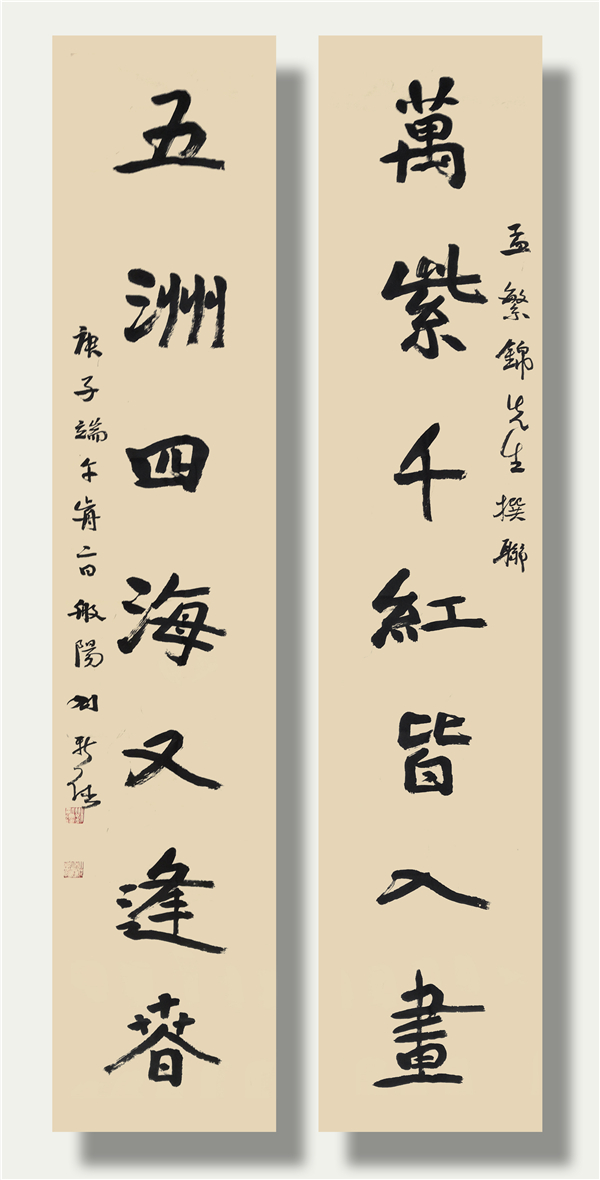 孟繁錦先生撰聯
萬紫千紅皆入畫
五洲四海又逢春
庚子端午前二日般陽刘新